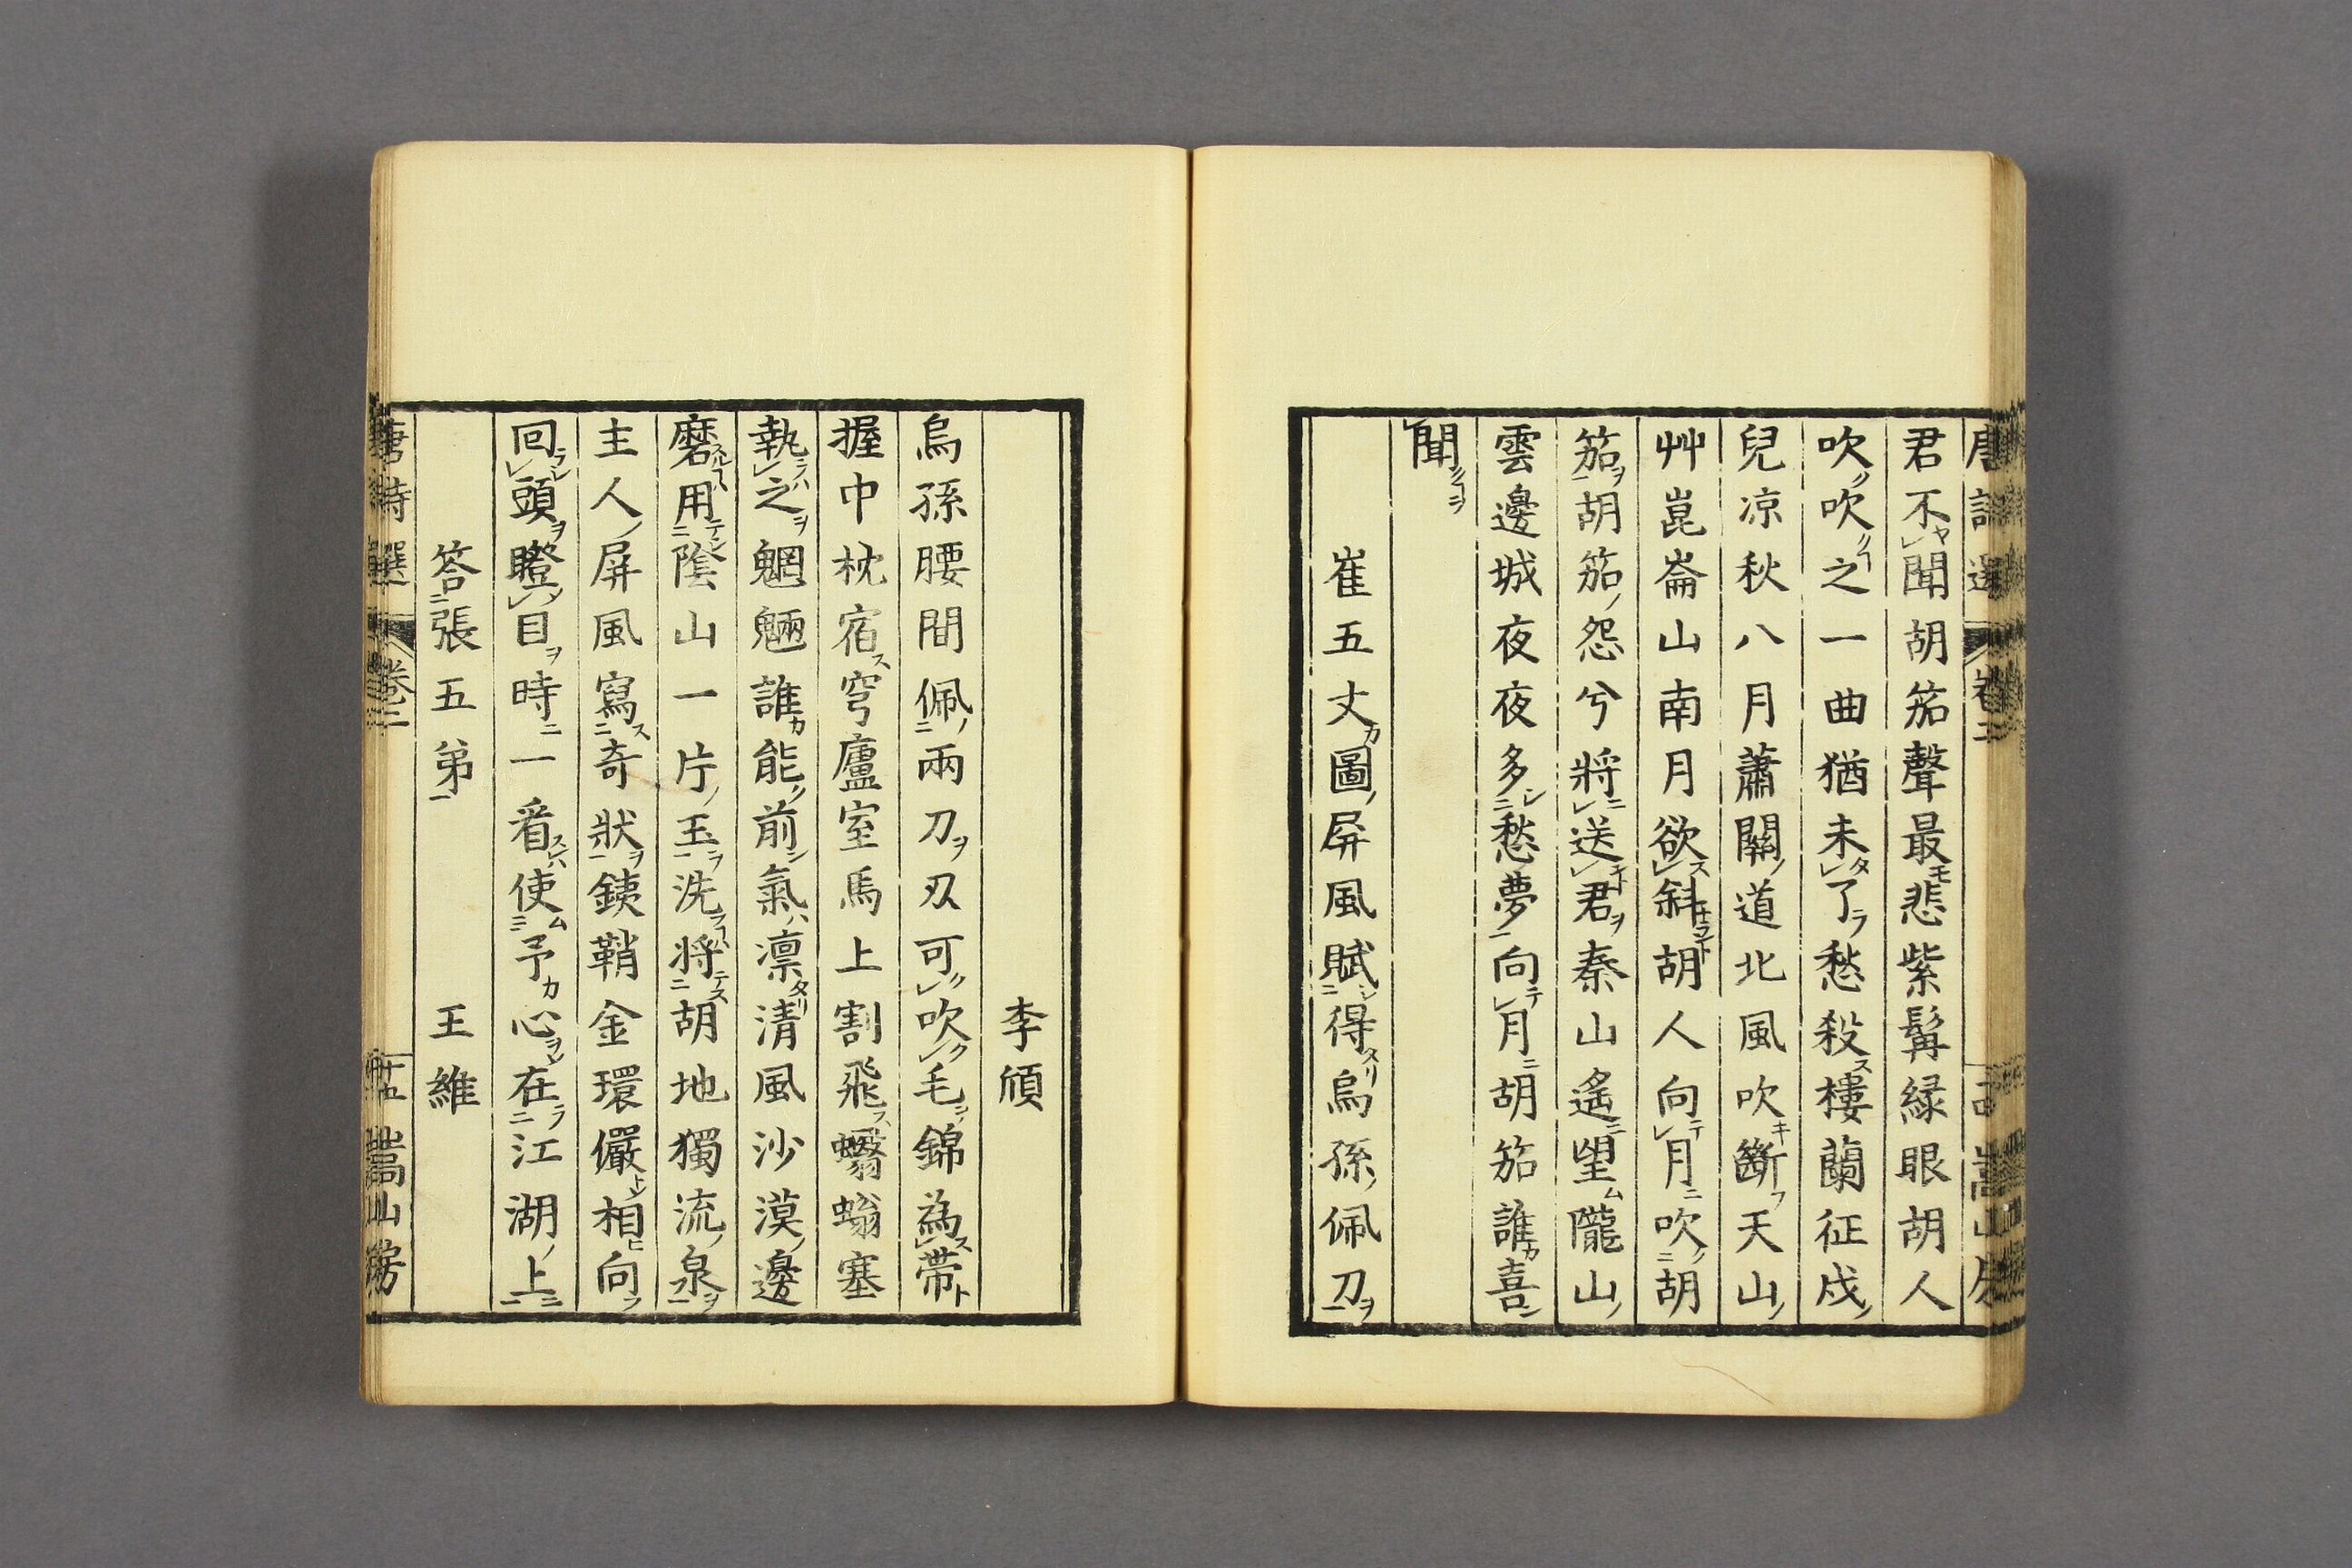 君不聞胡笳聲最悲紫髯緑眼胡人
吹吹之一曲猶未了愁殺樓蘭征戍
兒凉秋八月蕭關道北風吹斷天山
艸崑崙山南月欲斜胡人向月吹胡
笳胡笳怨兮將送君秦山遙望隴山
雲邊城夜夜多愁夢向月胡笳誰喜
聞
崔五丈圖屏風賦得烏孫佩刀
李頎
烏孫腰間佩兩刀刃可吹毛錦為帶
握中枕宿穹廬室馬上割飛䗾螉塞
執之魍魎誰能前氣凛清風沙漠邊
磨用陰山一片玉洗將胡地獨流泉
主人屏風寫奇狀銕鞘金環儼相向
回頭瞪目時一看使予心在江湖上
答張五弟 王維
唐詩選 卷二 十五 嵩山房